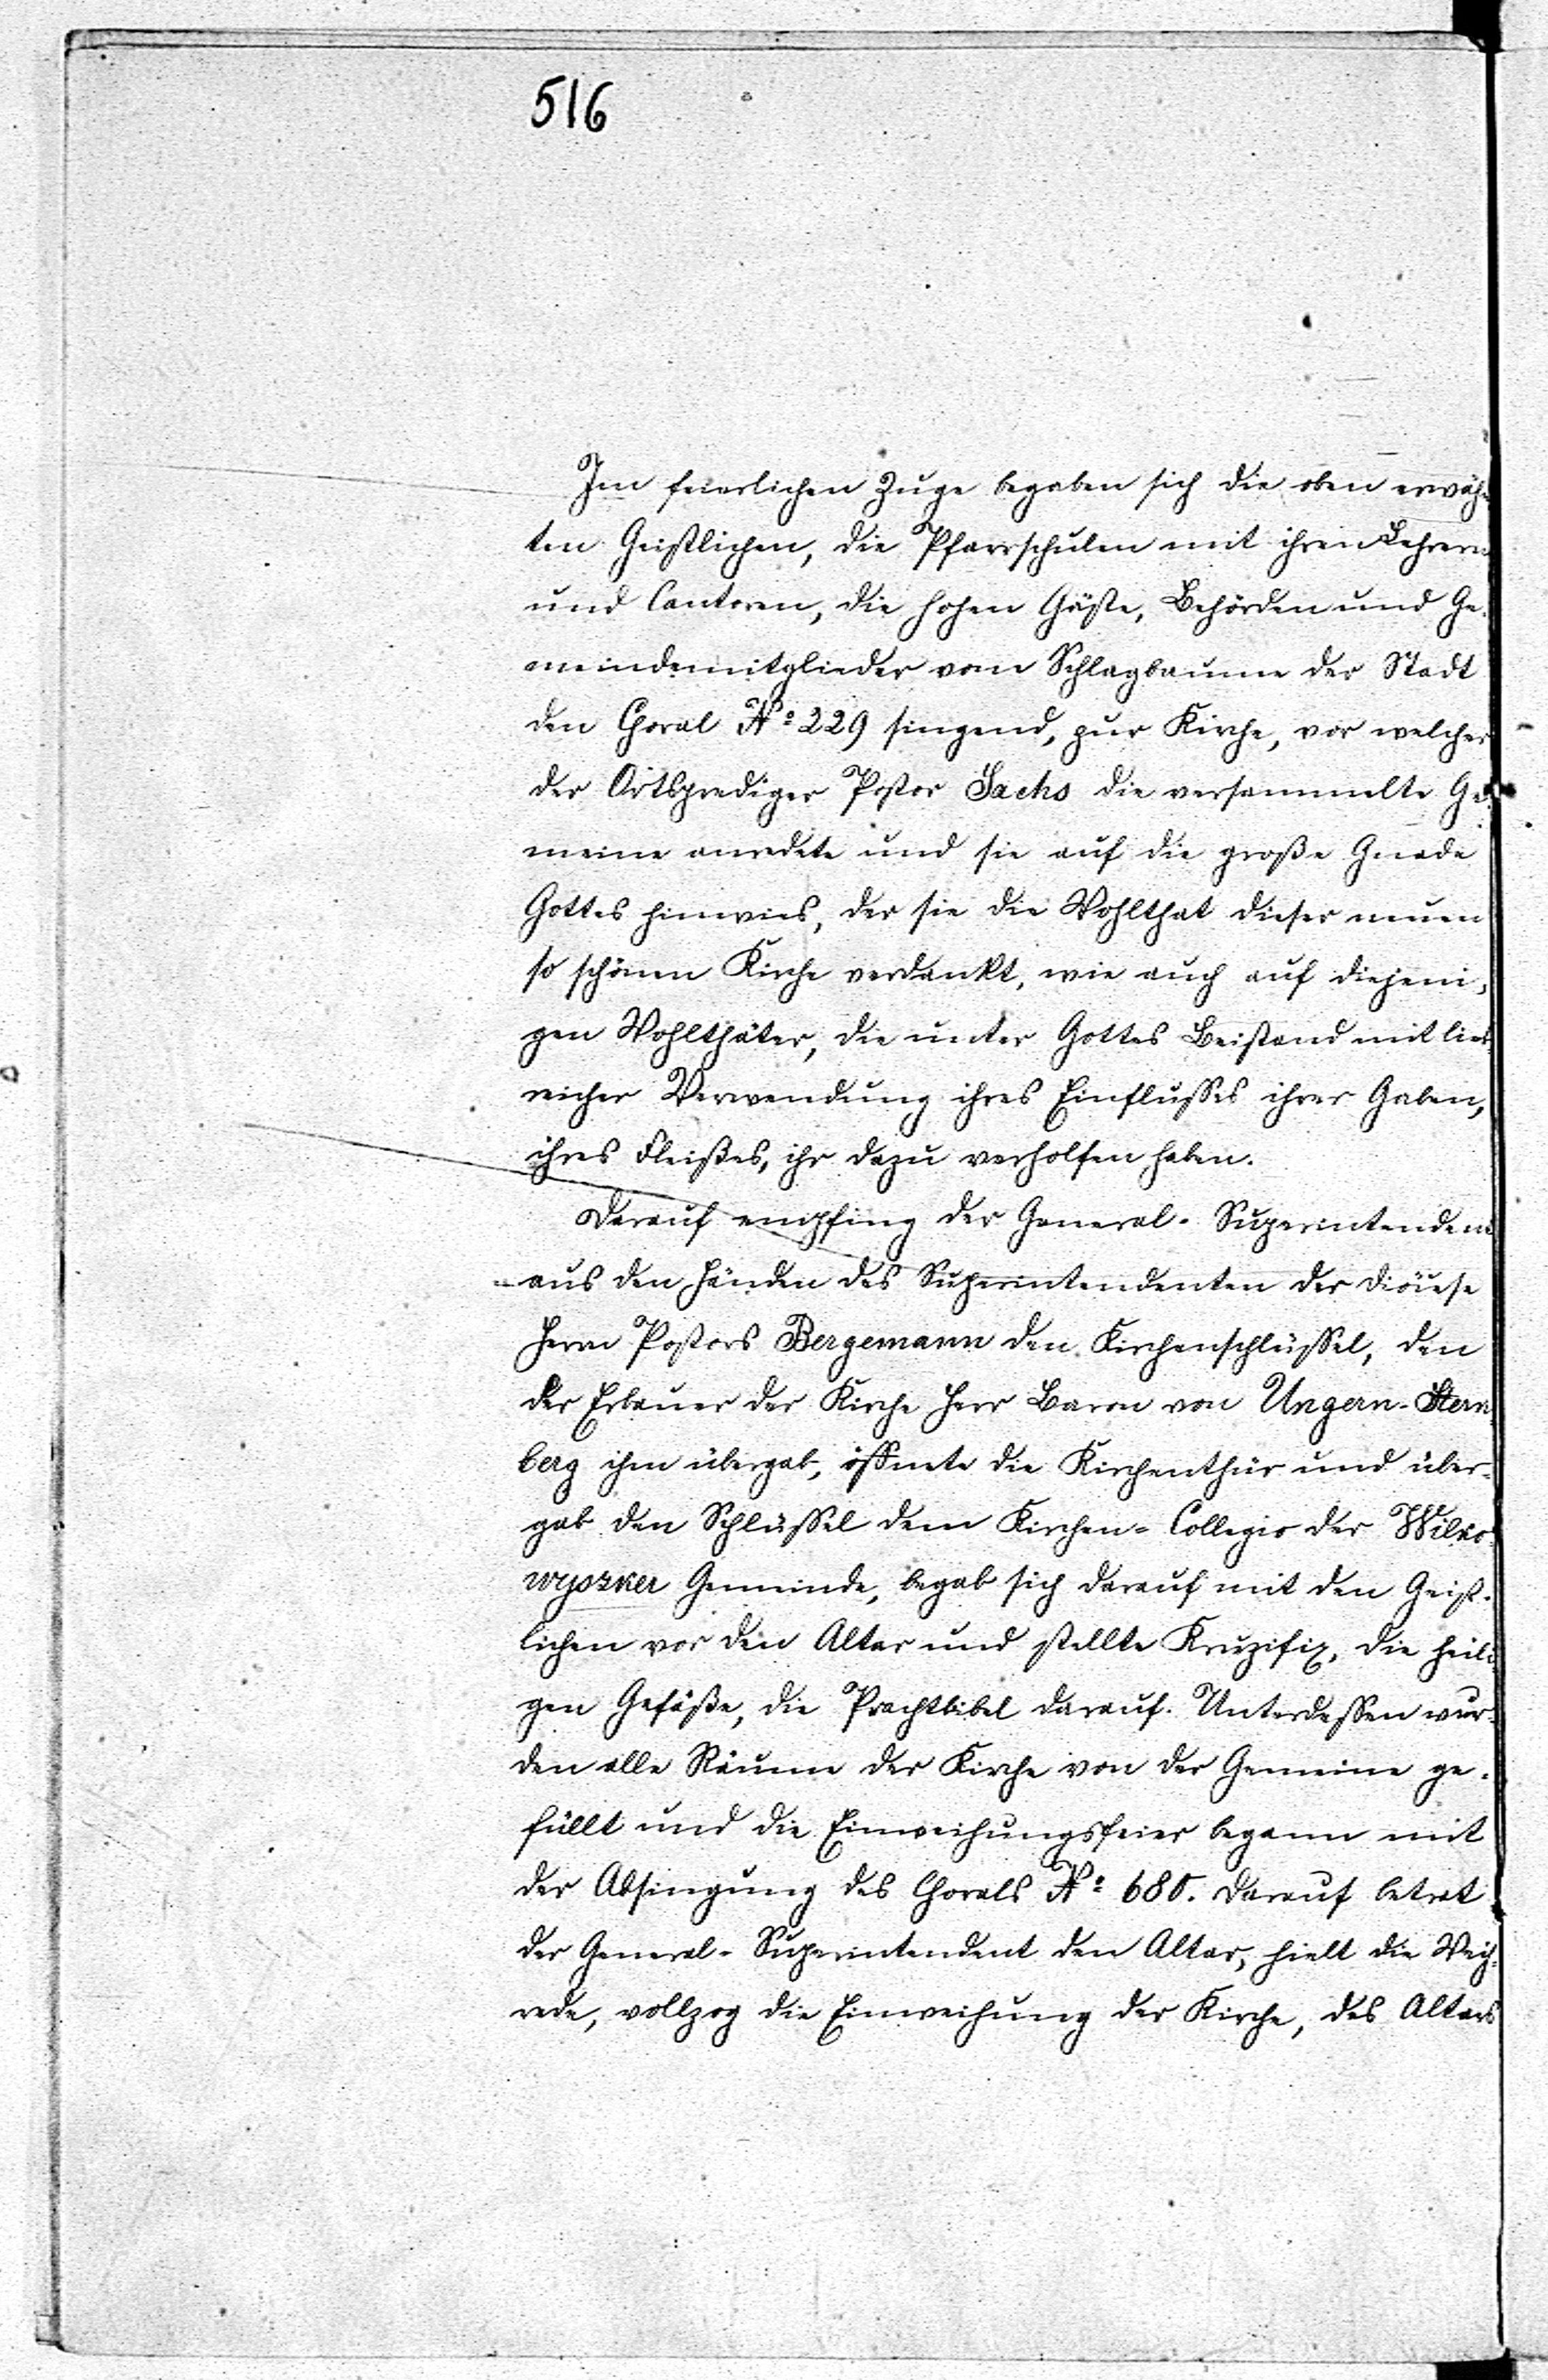 516
Im feierlichen Zuge begaben sich die oben erwähn
ten Geistlichen, die Pfarrschulen mit ihren Lehrern
und Cantoren, die hohen Gäste, Behörden und Ge-
meindemitglieder vom Schlagbaume der Stadt
den Choral № 229 singend, zur Kirche, vor welcher
der Ortsprediger Pastor Sachs die versammelte Ge-
meine anredete und sie auf die große Gnade
Gottes hinwies, der sie die Wohlthat dieser neuen
so schönen Kirche verdankt, wie auch auf diejeni-
gen Wohlthäter, die unter Gottes Beistand mit lieb-
reicher Verwendung ihres Einflußes ihrer Gaben,
ihres Fleißes, ihr dazu verholfen haben.
Darauf empfing der General-Superintendent
aus den Händen des Superintendenten der Diöcese
Herrn Pastors Bergemann den Kirchenschlüssel, den
der Erbauer der Kirche Herr Baron von Ungern-Stern-
berg ihm übergab, öffnete die Kirchenthür und über-
gab den Schlüssel dem Kirchen-Collegio der Wilko-
wyszker Gemeinde, begab sich darauf mit den Geist-
lichen vor den Altar und stellte Kruzifix, die heili-
gen Gefäße, die Prachtbibel darauf. Unterdessen wur-
den alle Räume der Kirche von der Gemeine ge-
füllt und die Einweihungsfeier begann mit
der Absingung des Chorals № 680. Darauf betrat
der General-Superintendent den Altar, hielt die Weih-
rede, vollzog die Einweihung der Kirche, des Altars